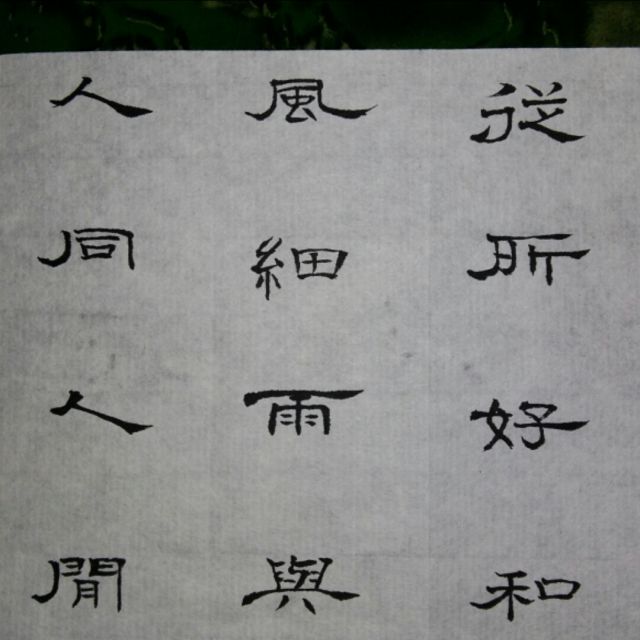 従所好和
風細雨與
人同人閒